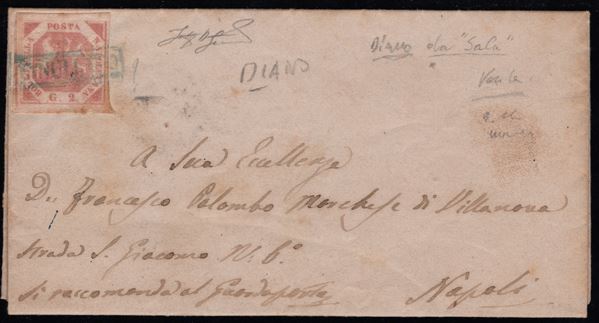 POSTA
G. 2
DIANO
Diano da "Sala"
Verde
A Sua Eccellenza
D. Francesco Palombo Marchese di Villanova
Strada S. Giacomo N. 6°
Si raccomanda al Guardaporta
Napoli